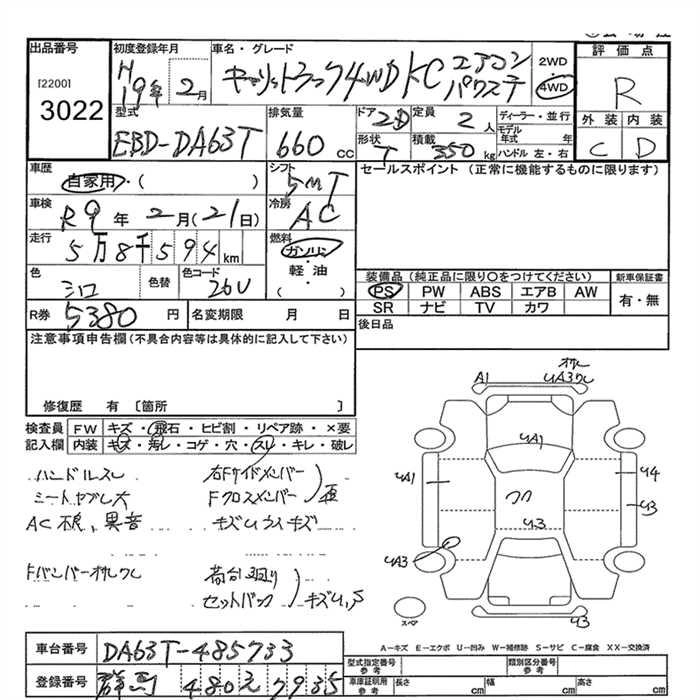 出品番号 初度登録年月 車名・グレード 2WD 評価点
[2200] H19年 2月 キャリィトラック4WD KC エアコン パワステ 4WD R
3022 型式 排気量 ドア 2D 定員 2人 ディーラー・並行 外装 内装
EBD-DA63T 660cc 形状 T 積載 350kg モデル年式 年 C D
ハンドル 左・右
車歴 自家用・( ) シフト 5MT セールスポイント (正常に機能するものに限ります)
車検 R9年 2月(21日) 冷房 AC
走行 5万8千594km 燃料 ガソリン・軽油 ( )
色 シロ 色替 色コード 26U
装備品 (純正品に限り〇をつけてください) 新車保証書
PS PW ABS エアB AW 有・無
SR ナビ TV カワ
R券 5380円 名変期限 月 日 後日品
注意事項申告欄 (不具合内容等は具体的に記入して下さい)
修復歴 有 〔箇所 〕
検査員 FW キズ・飛石・ヒビ割・リペア跡・×要
記入欄 内装 キズ・汚レ・コゲ・穴・スレ・キレ・破レ
ハンドルスレ 右Fサイドメンバー
シートヤブレ大 Fクロスメンバー
AC不良、異音 キズ
Fバンパー 荷台廻り
セットバック キズ
A1
UA3
UA1
UA1
U4
U3
U3
UA3
U3
スペア
A-キズ E-エクボ U-凹み W-補修跡 S-サビ C-腐食 XX-交換済
車台番号 DA63T-485733
登録番号 群馬 480 え 7935
型式指定番号 参考 類別区分番号 参考
車庫証明用 参考 長さ cm 幅 cm 高さ cm